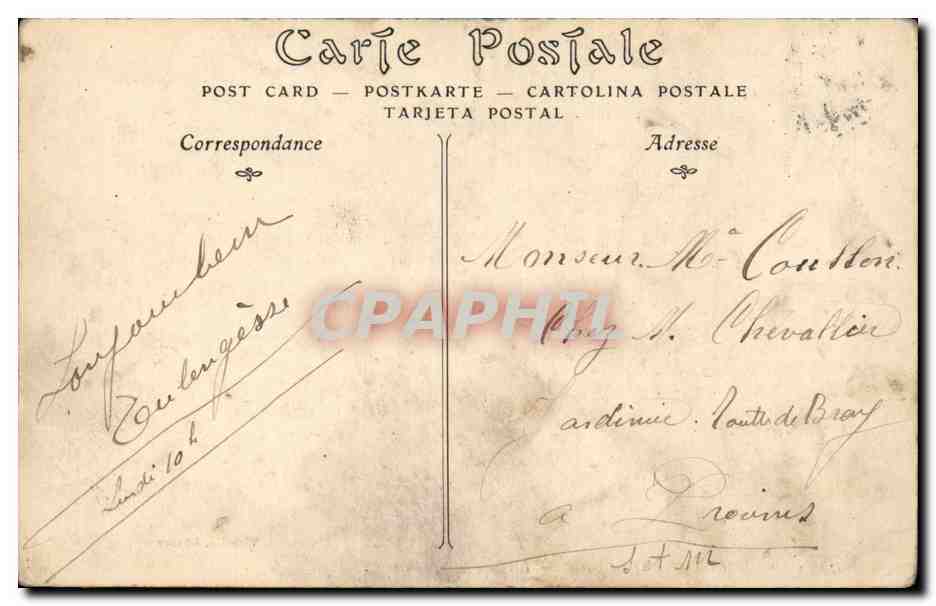 Carte Postale
POST CARD — POSTKARTE — CARTOLINA POSTALE
TARJETA POSTAL
Correspondance
Lundi 10 h
Adresse
Monsieur Mª Coutton
Chez M. Chevallier
Jardinier. Route de Bray
a Provins
S et M
CPAPHIL